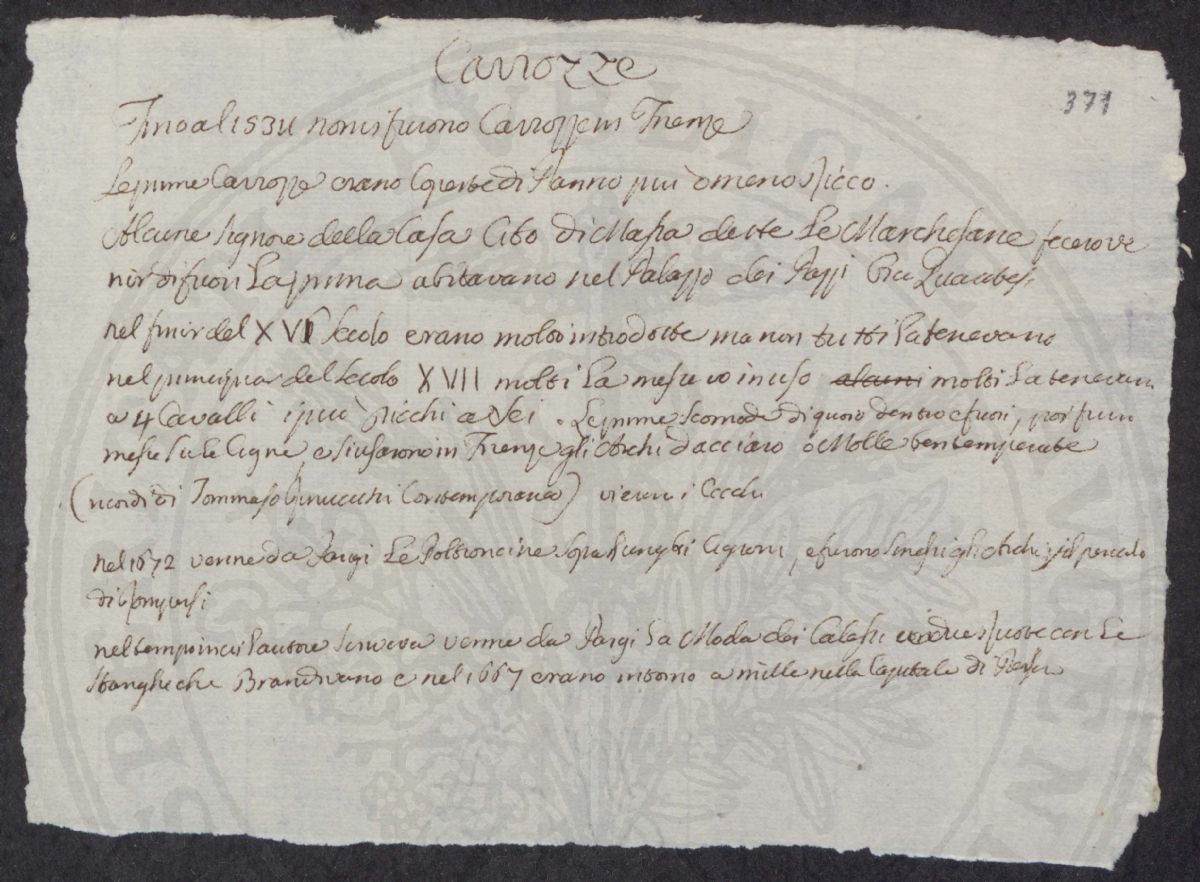 Carrozze
371
Fino al 1534 non vi furono Carrozze in Firenze
Le prime Carrozze erano Coperte di Panno più ò meno ricco.
Alcune Signore della Casa Cibo di Massa dette Le Marchesane fecero ve
nir di fuori La prima abitavano nel Palazzo dei Pazzi
nel finir del XVI Secolo erano molto introdotte ma non tutti La tenevano
nel principiar del Secolo XVII molti La messero in uso alcuni molti La tenevan
a 4 Cavalli i più ricchi a Sei. Le prime scomode di quoio dentro e fuori, poi furn
messe su le Cigne e si usarono in Firenze gli Archi d acciaro ò Molle ben temperate
(ricordi di Tommaso Rinuccini Contemporaneo) vi eran i Cocchi
nel 1672 venne da Parigi Le Poltroncine sopra Lunghi Cignoni, e furono smessi gli Archi pel pericolo
di Rompersi
nel tempo in cui L autore scriveva venne da Parigi La Moda dei Calessi due ruote con Le
Stanghe che Brandivano e nel 1667 erano intorno a mille nella Capitale di